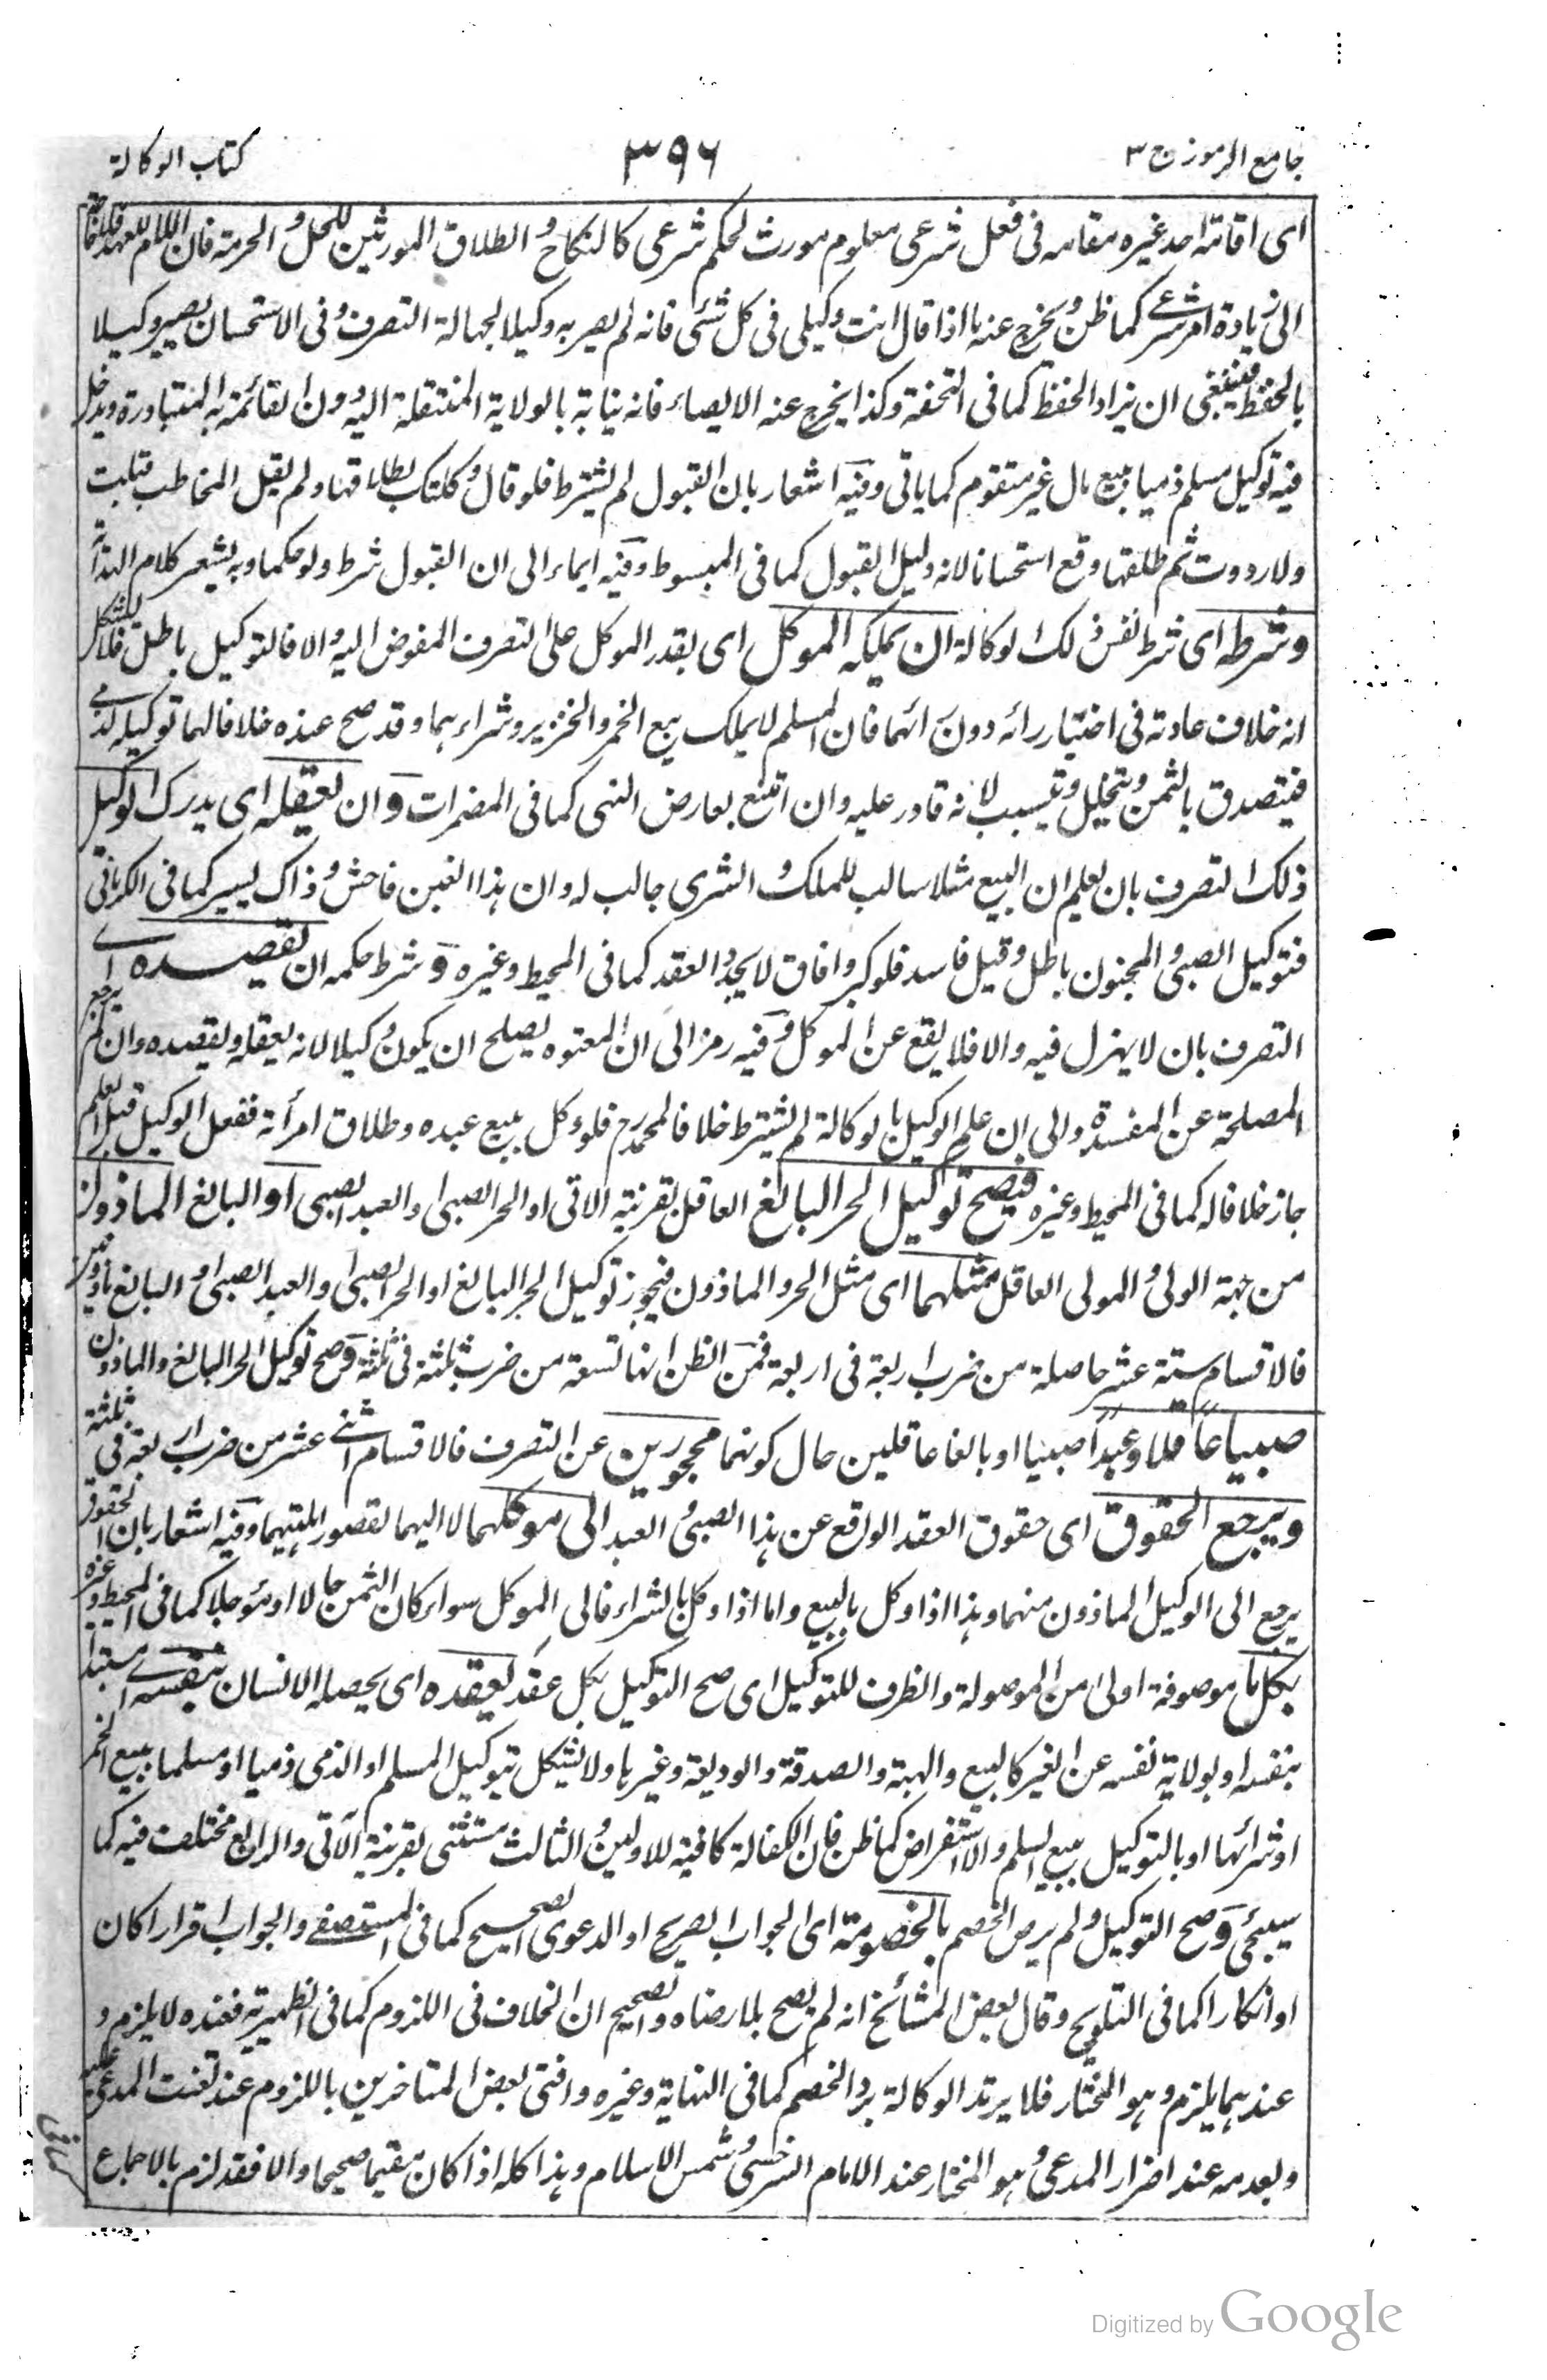 جامع الرموز ج ٣
٣٩٦
كتاب الوكالة
اى اقامة احد غيره مقامه فى فعل شرعى معلوم مورث لحكم شرعى كالنكاح و الطلاق المورثين للحل و الحرمة فان اللام للعهد فلا حاجة
الى زيادة امر شرعى كما ظن و يخرج عنه ما اذا قال انت وكيلى فى كل شئ فانه لم يصر به وكيلا لجهالة التصرف و فى الاستحسان يصير وكيلا
بالحفظ فينبغى ان يزاد الحفظ كما فى التحفة وكذا يخرج عنه الايصاء فانه نيابة بالولاية المنتقلة اليه دون القائمة به المتبادرة ويدخل
فيه توكيل مسلم ذميا ببيع مال غير متقوم كما ياتى وفيه اشعار بان القبول لم يشترط فلو قال وكلتك بطلاقها ولم يقل المخاطب قبلت
ولا رددت ثم طلقها وقع استحسانا لانه دليل القبول كما فى المبسوط وفيه ايماء الى ان القبول شرط ولو حكما وبه يشعر كلام
وشرطه اى شرط نفس ذلك الوكالة ان يملكه الموكل اى يقدر الموكل على التصرف المفوض اليه والا فالتوكيل باطل فلا يشكل
انه خلاف عادته فى اختيار رائه دون رائهما فان المسلم لا يملك بيع الخمر والخنزير وشراء هما وقد صح عنده خلافا لهما توكيله لذمى
فيتصدق بالثمن ويتخلل ويسيب لانه قادر عليه وان امتنع بعارض النهى كما فى المضمرات وان يعقله اى يدرك الوكيل
ذلك التصرف بان يعلم ان البيع مثلا سالب للملك و الشرى جالب له وان هذا الغبن فاحش و ذاك يسير كما فى الكرمانى
فتوكيل الصبى و المجنون باطل وقيل فاسد فلو كبر وافاق لا يجدد العقد كما فى المحيط وغيره وشرط حكمه ان يقصده اى
التصرف بان لا يهزل فيه والا فلا يقع عن الموكل وفيه رمز الى ان المعتوه يصلح ان يكون وكيلا لانه يعقله ويقصده وان لم يرجح
المصلحة عن المفسدة والى ان علم الوكيل بالوكالة لم يشترط خلافا لمحمد رح فلو وكل ببيع عبده وطلاق امرأته ففعل الوكيل قبل العلم
جاز خلافا له كما فى المحيط وغيره فيصح توكيل الحر البالغ العاقل بقرينة الآتى او الحر الصبى او العبد الصبى او البالغ الماذون
من جهة الولى و المولى العاقل مثلهما اى مثل الحر والماذون فيجوز توكيل الحر البالغ او الحر الصبى او العبد الصبى او البالغ ماذونين
فالاقسام ستة عشر حاصلة من ضرب اربعة فى اربعة فمن الظن انها تسعة من ضرب ثلثة فى ثلثة وصح توكيل الحر البالغ والماذون
صبيا عاقلا وعبدا صبيا او بالغا عاقلين حال كونهما محجورين عن التصرف فالاقسام اثنى عشر من ضرب اربعة فى ثلثة
ويرجع الحقوق اى حقوق العقد الواقع عن هذا الصبى و العبد الى موكلهما لا اليهما لقصور اهليتهما وفيه اشعار بان الحقوق
يرجع الى الوكيل الماذون منهما وهذا اذا وكل بالبيع واما اذا وكل بالشراء فالى الموكل سواء كان الثمن حالا او مؤجلا كما فى المحيط وغيره
بكل ما موصوفة اولى من الموصولة والظرف للتوكيل اى صح التوكيل بكل عقد يعقده اى يحصله الانسان بنفسه اى مستبدا
بنفسه او بولاية نفسه عن الغير كالبيع والهبة والصدقة والوديعة وغيرها ولا يشكل بتوكيل المسلم او الذمى ذميا او مسلما ببيع الخمر
او شرائها او بالتوكيل ببيع السلم والاستقراض كما ظن فان الكفالة كافية للاولين و الثالث مستثنى بقرينة الآتى والرابع مختلف فيه كما
سيجئ وصح التوكيل و لم يرض الخصم بالخصومة اى الجواب الصريح او الدعوى الصحيح كما فى المستصفى والجواب اقرارا كان
او انكارا كما فى التلويح وقال بعض المشائخ انه لم يصح بلا رضاه والصحيح ان الخلاف فى اللزوم كما فى الظهيرية فعنده لا يلزم و
عندهما يلزم وهو المختار فلا يرتد الوكالة برد الخصم كما فى النهاية وغيره وافتى بعض المتاخرين باللزوم عند تعنت المدعى عليه
وبعدمه عند اضرار المدعى و هو المختار عند الامام السرخسى و شمس الاسلام وهذا كله اذا كان مقيما صحيحا والا فقد لزم بالاجماع
Digitized by Google